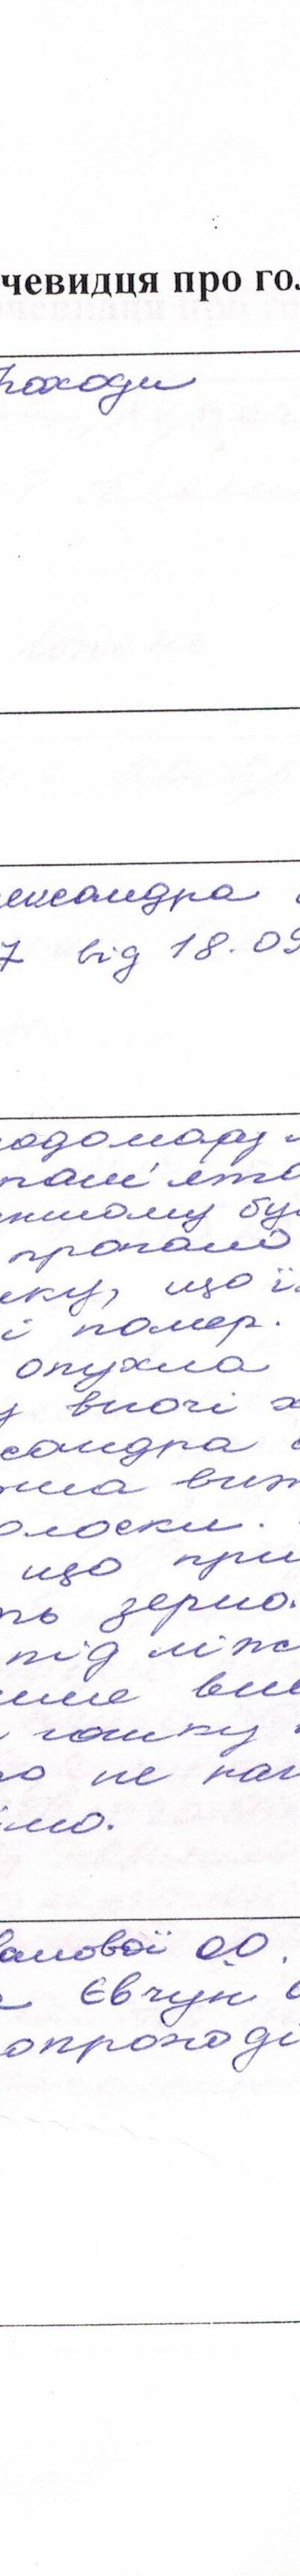 чевидця про го
походи
лександра
7 від 18.09
лодомору
пам'ята
шньому бу
пропало
ку, що ї
і помер.
опухла
у вночі х
ксандра
ила виж
олоски.
що при
ть зерно.
під ліж
ше ви
гошку
о не на
імо.
ванової О.О.
Євчун
опроході